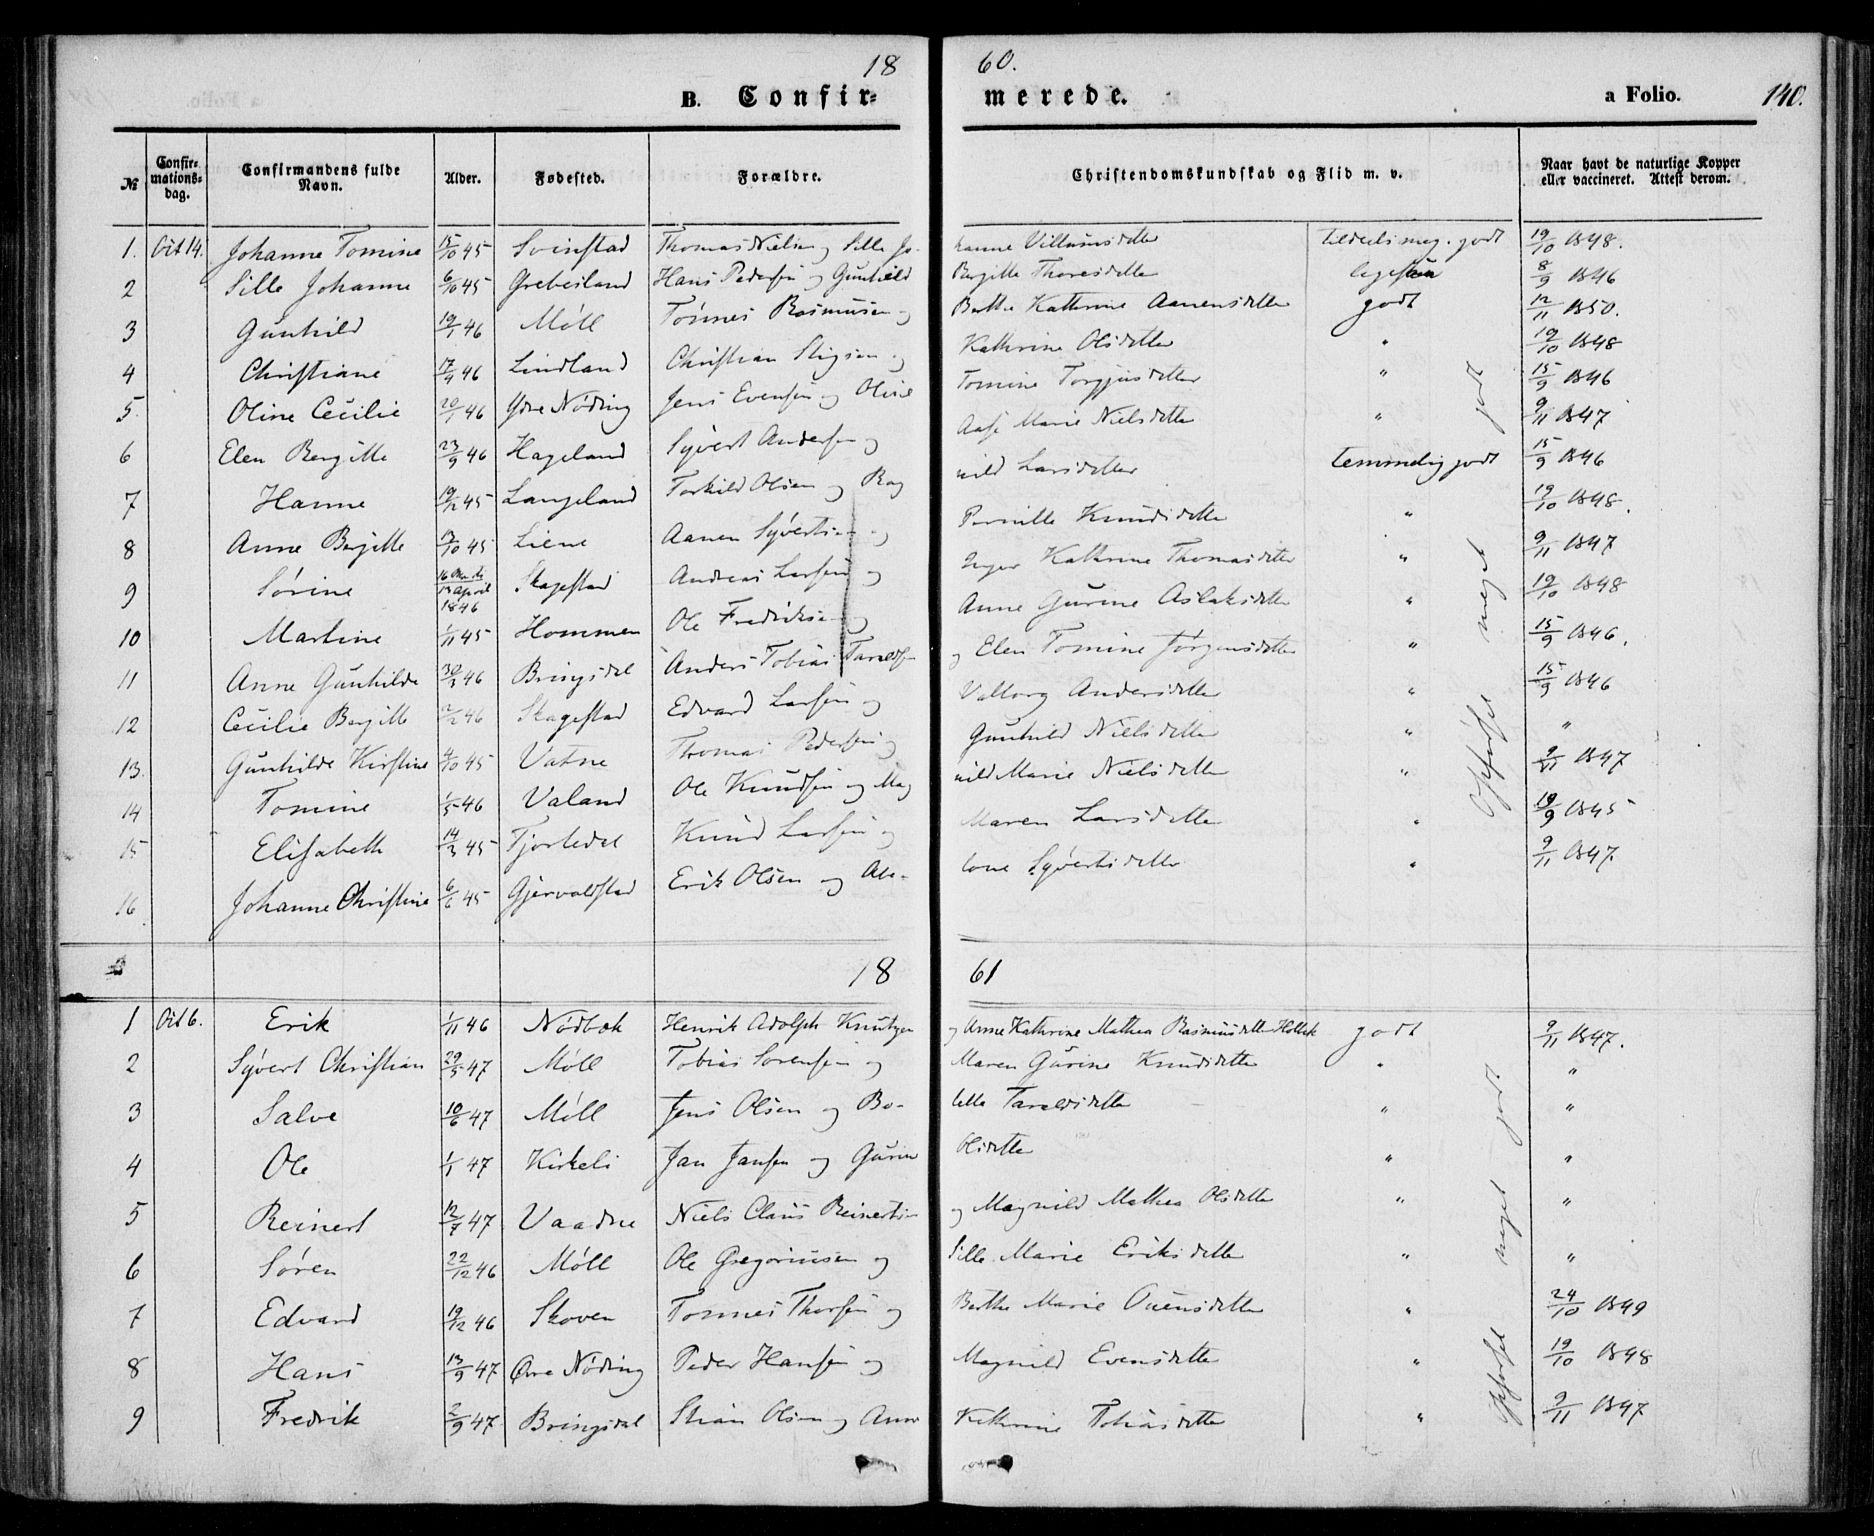 18 60.
B. Confir- merede. a Folio. 140.
№ Confirmations-dag. Confirmandens fulde Navn. Alder. Fødested. Forældre. Christendomskundskab og Flid m. v. Naar havt de naturlige Kopper eller vaccineret. Attest derom.
1. Oct 14. Johanne Tomine 15/10 45 Svinstad Thomas Nielsen og Sille Johanne Villumsdatter tildeels meg. godt 19/10 1848.
2 Sille Johanne 6/10 45 Grebesland Hans Pedersen og Gunhild Bergitte Thoresdatter ligesaa 8/9 1846
3 Gunhild 19/1 46 Möll Tönnes Rasmusen og Berthe Kathrine Aanensdatter godt 12/11 1850.
4 Christiane 17/4 46 Lindland Christian Stigsen og Kathrine Olsdatter " 19/10 1848
5. Oline Cecilie 20/1 46 Ydre Nöding Jens Evensen og Oline Tomine Torgjusdatter " 15/9 1846
6 Elen Bergitte 23/9 46 Hageland Syvert Andersen og Aase Marie Nielsdatter " 9/11 1847
7 Hanne 19/12 45 Langeland Torkild Olsen og Rag nild Larsdatter temmelig godt 15/9 1846
8 Anne Bergitte 13/10 45 Liene Aanen Syvertsen og Pernille Knudsdatter " 19/10 1848.
9 Sörine 1846 Skagestad Andreas Larsen og Inger Kathrine Thomasdatter " 9/11 1847
10 Martine 1/11 45 Hommen Ole Fredriksen og Anne Gurine Aslaksdatter " 19/10 1848
11 Anne Gunhilde 30/3 46 Bringsdal Anders Tobias Taraldsen og Elen Tomine Jörgensdatter " 15/9 1846.
12 Cecilie Bergitte 2/2 46 Skagestad Edvard Larsen og Valborg Andersdatter " 15/9 1846
13. Gunhilde Kirstine 4/10 45 Vatne Thomas Pedersen og Gunhild Nielsdatter " "
14 Tomine 1/5 46 Valand Ole Knudsen og Mag nild Marie Nielsdatter " 9/11 1847
15 Elisabeth 14/3 45 Tjortedal Knud Larsen og Maren Larsdatter " 19/9 1845
16 Johanne Christine 6/6 45 Gjervaldstad Erik Olsen og Ale- tone Syvertsdatter " 9/11 1847.
Opförsel meget godt
18 61
1 Oct 6. Erik 1/11 46 Nödbek Henrik Adolph Knutzen og Anne Kathrine Mathea Rasmusdatter Holbek godt 9/11 1847.
2 Syvert Christian 29/5 47 Möll Tobias Sorensen og Maren Gurine Knudsdatter " "
3 Salve 10/6 47 Möll Jens Olsen og Bo- lette Taraldsdatter " "
4 Ole 1/1 47 Kirkeli Jan Jansen og Gurine Olsdatter " "
5 Reinert 12/7 47 Vaadne Niels Claus Reinertsen og Magnild Mathea Olsdatter " "
6 Sören 22/12 46 Möll Ole Gregoriusen og Sille Marie Eriksdatter " "
7 Edvard 19/12 46 Skoven Tonnes Thorsen og Berthe Marie Ouensdatter " 24/10 1849
8 Hans 13/9 47 Övre Nöding Peder Hansen og Magnild Evensdatter " 19/10 1848
9 Fredrik 2/9 47 Bringsdal Stian Olsen og Anne Kathrine Tobiasdatter " 9/11 1847
Opförsel meget godt